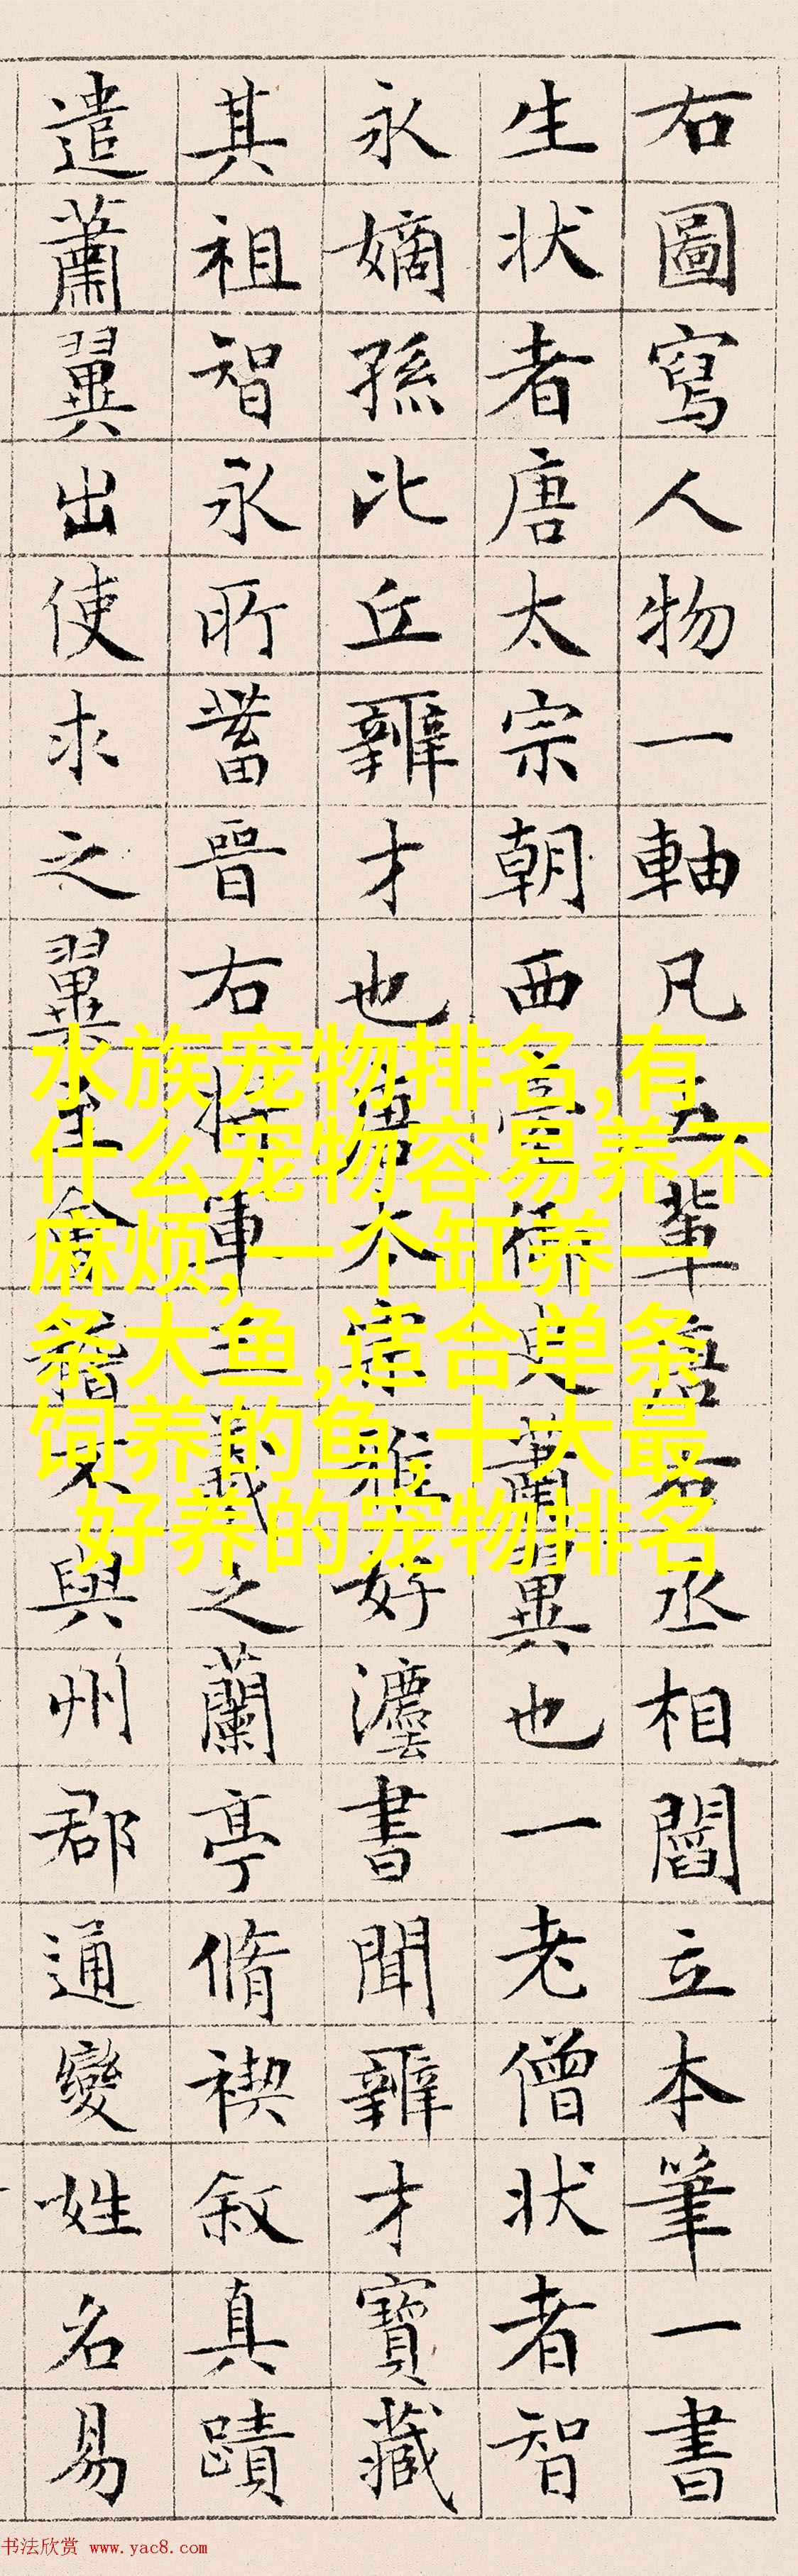 右圖寫人物一軸凡五輩唐右丞相閻立本筆一書
生状者唐太宗朝西臺御史蕭翼也一老僧状者智
永嫡孫比丘辯才也唐太宗雅好灋書聞辯才寶藏
其祖智永所蓄晉右將軍王羲之蘭亭脩禊叙真蹟
遣蕭翼出使求之翼至會稽不與州郡通變姓名易
水族宠物排名,有
什么宠物容易养不
麻烦,一个缸养一
条大鱼,适合单条
饲养的鱼,十大最
好养的宠物排名
书法欣赏 www.yac8.com